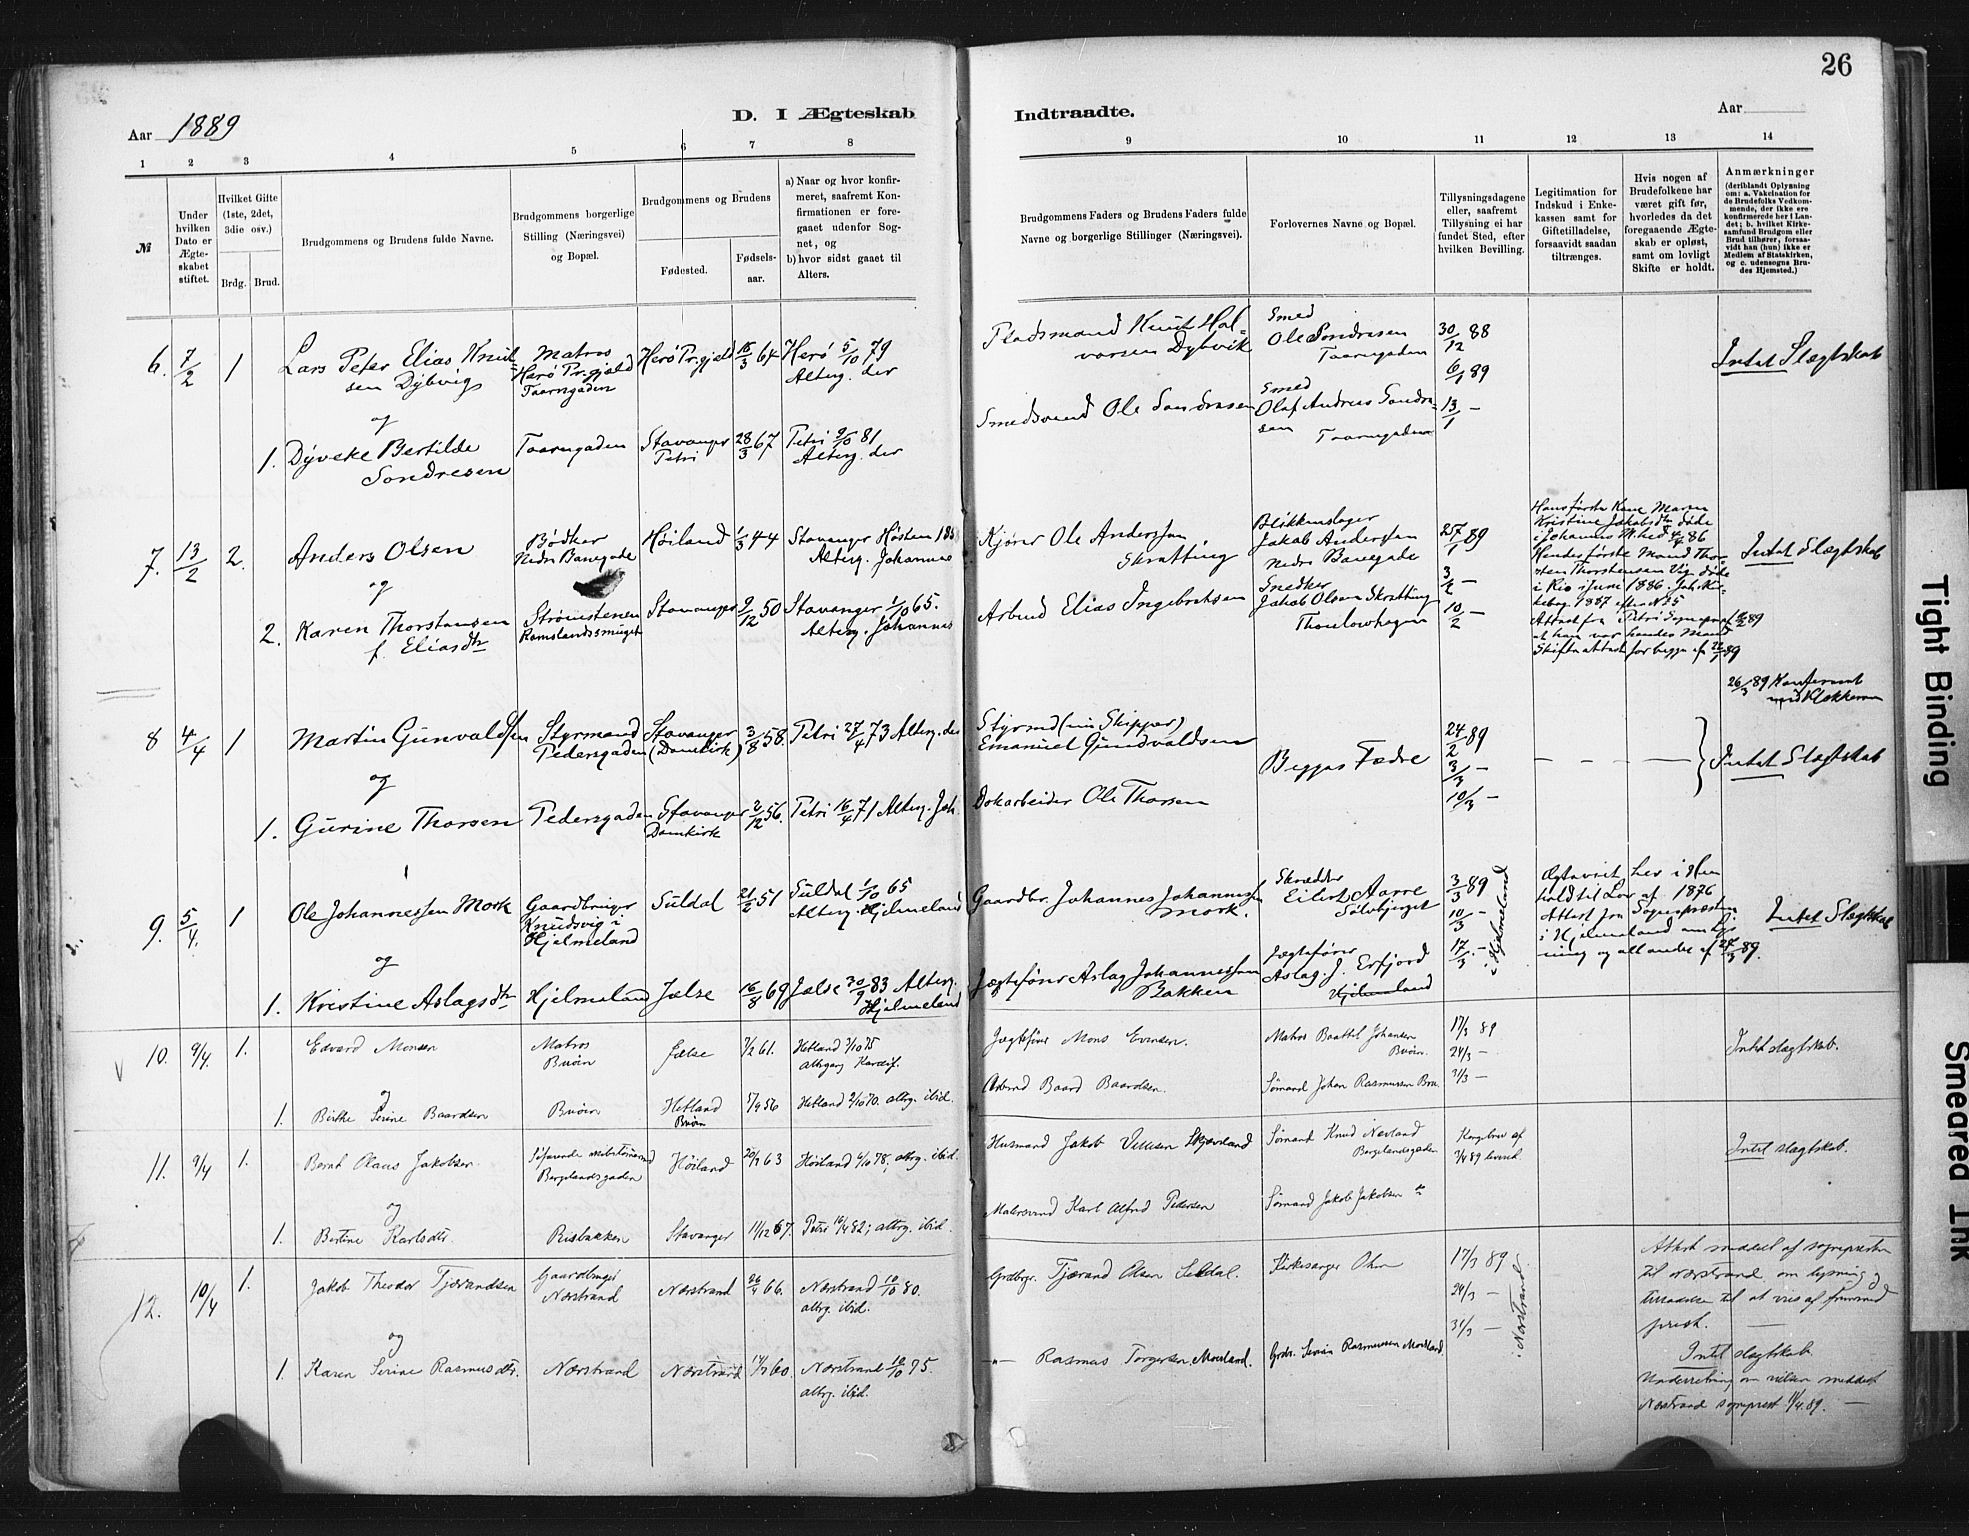 26
Aar 1889
D. I Ægteskab
Indtraadte.
Aar
1 2 3 4 5 6 7 8
9 10 11 12 13 14
№
Under hvilken Dato er Ægteskabet stiftet.
Hvilket Gifte (1ste, 2det, 3die osv.)
Brdg. Brud.
Brudgommens og Brudens fulde Navne.
Brudgommens borgerlige Stilling (Næringsvei) og Bopæl.
Brudgommens og Brudens
Fødested.
Fødselsaar.
a) Naar og hvor konfirmeret, saafremt Konfirmationen er foregaaet udenfor Sognet, og
b) hvor sidst gaaet til Alters.
Brudgommens Faders og Brudens Faders fulde Navne og borgerlige Stillinger (Næringsvei).
Forlovernes Navne og Bopæl.
Tillysningsdagene eller, saafremt Tillysning ei har fundet Sted, efter hvilken Bevilling.
Legitimation for Indskud i Enkekassen samt for Giftetilladelse, forsaavidt saadan tiltrænges.
Hvis nogen af Brudefolkene har været gift før, hvorledes da det foregaaende Ægteskab er opløst, samt om lovligt Skifte er holdt.
Anmærkninger
(deriblandt Oplysning om: a. Vakcination for de Brudefolks Vedkommende, der ikke ere konfirmerede her i Landet; b. hvilket Kirkesamfund Brudgom eller Brud tilhører, forsaavidt han (hun) ikke er Medlem af Statskirken, og c. udensogns Brudes Hjemsted.)
6. 7/2 1 Lars Peter Elias Knutsen Dybvig
Matros Herø Pr.gjeld Taarngaden
Herø Pr.gjeld 15/3 64 Herø 5/10 79 Alterg. der
Pladsmand Knut Halvorsen Dybvik
Smed Ole Sondresen Taarngaden
30/12 88
6/1 89
13/1 –
Intet Slægtskab
og
1. Dyveke Bertilde Sondresen
Taarngaden Stavanger Petri 28/3 67 Petri 9/10 81 Alterg. der
Smedsvend Ole Sondresen
Smed Olaf Andreas Sondresen Taarngaden
7. 13/2 2. Anders Olsen
Bødker Nedre Banegade
Høiland 1/3 44 Stavanger Høsten Alterg. Johannes
Kjører Ole Anderssen Skratting
Blikkenslager Jakob Anderssen Nedre Banegade
25/1 89
3/2 –
10/2 –
Hans første Kone Maren Kristine Jakobsdtr døde i Johannes Mhed 4/4 86
Hendes første Mand Thorsten Thorstensen Vig døde i Rio i Juni 1886.
Intet Slægtskab
og
2. Karen Thorstensen f. Eliasdtr
Strømstenen Ramslandssmuget
Stavanger 9/12 50 Stavanger 1/10 65. Alterg. Johannes
Arbmd Elias Ingebretsen
Snedker Jakob Olsen Skratting Thoulowhagen
Attest fra Petri Sogneprest
at han var hendes Mand
Skifteattest for begge af
26/3 89 Konfereret med Klokkeren
8 4/4 1 Martin Gunvaldsen
Styrmand Pedersgaden
Stavanger (Domkirk) 3/8 58. Petri 27/4 73 Alterg. der
Styrmd (nu Skipper) Emanuel Gundvaldsen
Begges Fædre
24/2 89
3/3 –
10/3 –
Intet Slægtskab
og
1. Gurine Thorsen
Pedersgaden Stavanger Domkirk 2/12 56. Petri 16/4 71 Alterg. Joh.
Dokarbeider Ole Thorsen
9. 5/4. 1 Ole Johannessen Mork
Gaardbruger Knudsvig i Hjelmeland
Suldal 21/2 51 Suldal 1/10 65 Alterg. Hjelmeland
Gaardbr. Johannes Johannessen Mork.
Skrædder Eilert Aarre Sølvbjerget
3/3 89
10/3 –
17/3 –
i Hjelmeland
Attest fra Sognepresten i Hjelmeland om lysning og alt andet af 27/3 89.
Intet Slægtskab
og
1. Kristine Aslagsdtr
Hjelmeland Jelse 16/8 69 Jelse 30/9 83 Alterg. Hjelmeland
Jægtefører Aslag Johannessen Bakken
Jægtefører Aslag. J. Erfjord Hjelmeland
10. 9/4. 1. Edvard Monsen
Matros Buøen
Jelse 7/2 61. Hetland 3/10 75
Jægtefører Mons Evensen.
Matros Baattel Johansen Buøen.
17/3 89
24/3 –
31/3 –
Intet slægtskab.
og
1. Birthe Serine Baardsen
Buøen Hetland Buøen 5/9 56 Hetland 2/10 70. altrg. ibid.
Arbmd Baard Baardsen.
Sømand Johan Rasmussen Bru.
11. 9/4 1. Bernt Olaus Jakobsen.
Bergelandsgaden
Høiland 20/7 63 Høiland 6/10 78, altrg. ibid.
Husmand Jakob Villumsen Skjæveland
Sømand Knud Nævland Bergelandsgaden
Kongebrev af
Intet slægtskab.
og
1. Bertine Karlsdtr.
Risbakken Stavanger 11/12 67. Petri 16/4 82; altrg. ibid.
Malersvend Karl Alfred Pedersen
Sømand Jakob Jakobsen
12. 10/4 1. Jakob Theodor Tjærandsen
Gaardbruger Nerstrand
Nerstrand 26/4 66. Nerstrand 10/10 80. altrg. ibid.
Grdbrgr. Tjærand Olsen Seldal.
Kirkesanger Olsen
17/3 89
24/3 –
31/3 –
i Nærstrand
Attest meddelt af sognepresten til Nærstrand om lysning og tilladelse til at vies af fremmed prest. –
Intet slægtskab.
Underretning om vielsen meddelt Nærstrand sogneprest 11/4. 89. –
og
1. Karen Serine Rasmusdtr.
Nærstrand Nærstrand 14/7 60. Nærstrand 10/10 75. altrg. ibid.
–"– Rasmus Torgersen Moeland.
Grdbr. Svein Rasmussen Moeland
Tight Binding
Smeared Ink